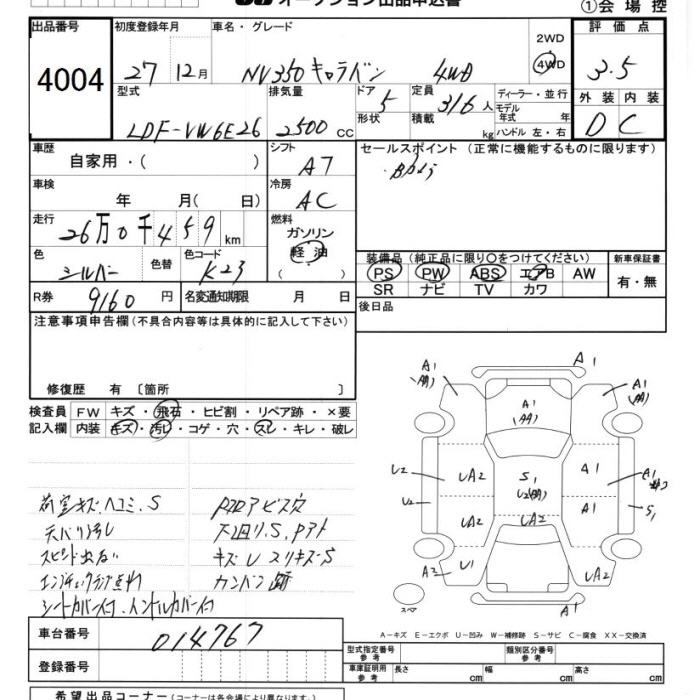 オークション出品申込書
①会場控
出品番号 4004
初度登録年月 27 12月
車名・グレード NV350キャラバン 4WD
2WD 4WD
評価点 3.5
外装 内装 D C
型式 LDF-VW6E26
排気量 2500 cc
ドア 5 形状
定員 3/6人 積載 kg
ディーラー・並行
モデル年式 年
ハンドル 左・右
車歴 自家用・( )
シフト A7
セールスポイント (正常に機能するものに限ります)
車検 年 月(日)
冷房 AC
走行 26万0千459km
燃料 ガソリン 軽油 ( )
色 シルバー 色替 色コード K23
装備品 (純正品に限り〇をつけてください) 新車保証書
PS PW ABS エアB AW 有・無
SR ナビ TV カワ
R券 9160円 名変通知期限 月 日
後日品
注意事項申告欄 (不具合内容等は具体的に記入して下さい)
修復歴 有 〔箇所 〕
検査員 FW キズ・飛石・ヒビ割・リペア跡・×要
記入欄 内装 キズ・汚レ・コゲ・穴・スレ・キレ・破レ
荷室キズ、ヘコミ、S
天バリ汚レ 下廻りS、Pアト
キズレスリキズ・S
シートカバー付、ハンドルカバー付
A1 A1 A1
A1
U2 UA2 S1 A1 A1
U2 UA2 UA2 A1 S1
A2 U1 UA2
スペア A1
A-キズ E-エクボ U-凹み W-補修跡 S-サビ C-腐食 XX-交換済
車台番号 014767
型式指定番号 参考 類別区分番号 参考
登録番号
車庫証明用 参考 長さ cm 幅 cm 高さ cm
希望出品コーナー (コーナーは各会場により異なります)